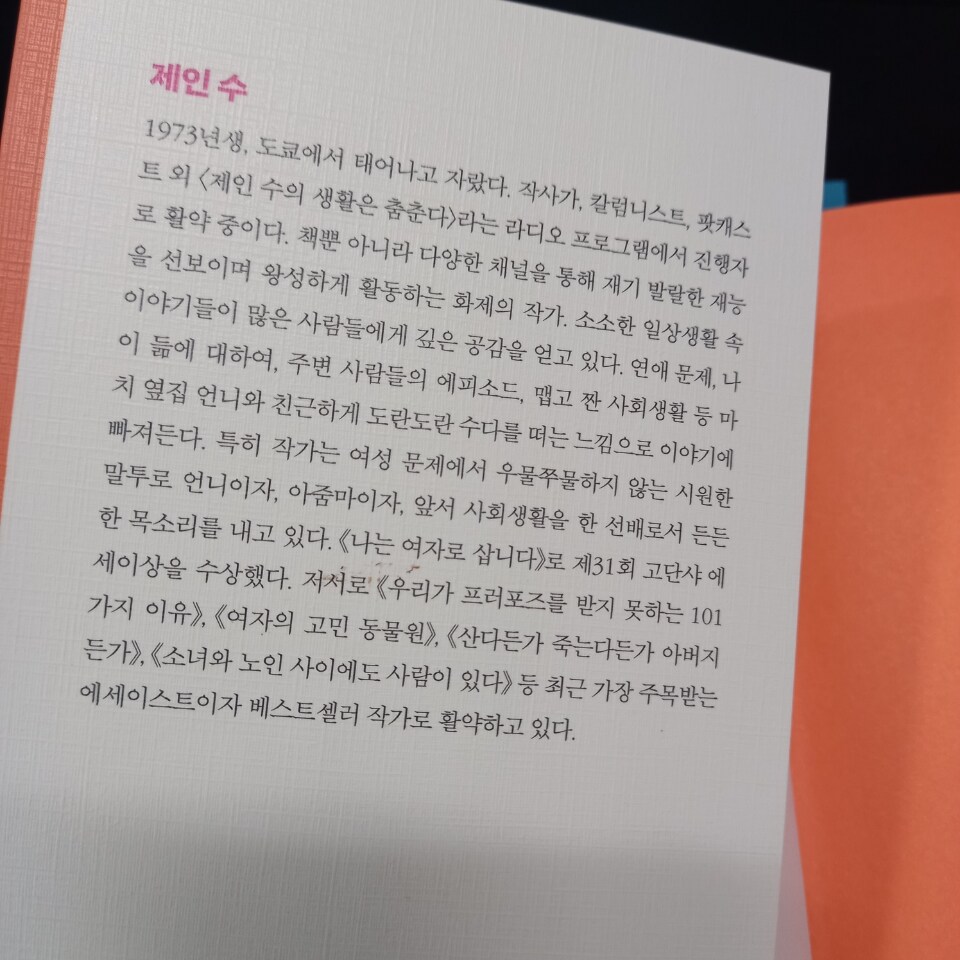 제인 수
1973년생, 도쿄에서 태어나고 자랐다. 작사가, 칼럼니스트, 팟캐스
트 외 〈제인 수의 생활은 춤춘다〉라는 라디오 프로그램에서 진행자
로 활약 중이다. 책뿐 아니라 다양한 채널을 통해 재기 발랄한 재능
을 선보이며 왕성하게 활동하는 화제의 작가. 소소한 일상생활 속
이야기들이 많은 사람들에게 깊은 공감을 얻고 있다. 연애 문제, 나
이 듦에 대하여, 주변 사람들의 에피소드, 맵고 짠 사회생활 등 마
치 옆집 언니와 친근하게 도란도란 수다를 떠는 느낌으로 이야기에
빠져든다. 특히 작가는 여성 문제에서 우물쭈물하지 않는 시원한
말투로 언니이자, 아줌마이자, 앞서 사회생활을 한 선배로서 든든
한 목소리를 내고 있다. 《나는 여자로 삽니다》로 제31회 고단샤 에
세이상을 수상했다. 저서로 《우리가 프러포즈를 받지 못하는 101
가지 이유》, 《여자의 고민 동물원》, 《산다든가 죽는다든가 아버지
든가》, 《소녀와 노인 사이에도 사람이 있다》 등 최근 가장 주목받는
에세이스트이자 베스트셀러 작가로 활약하고 있다.